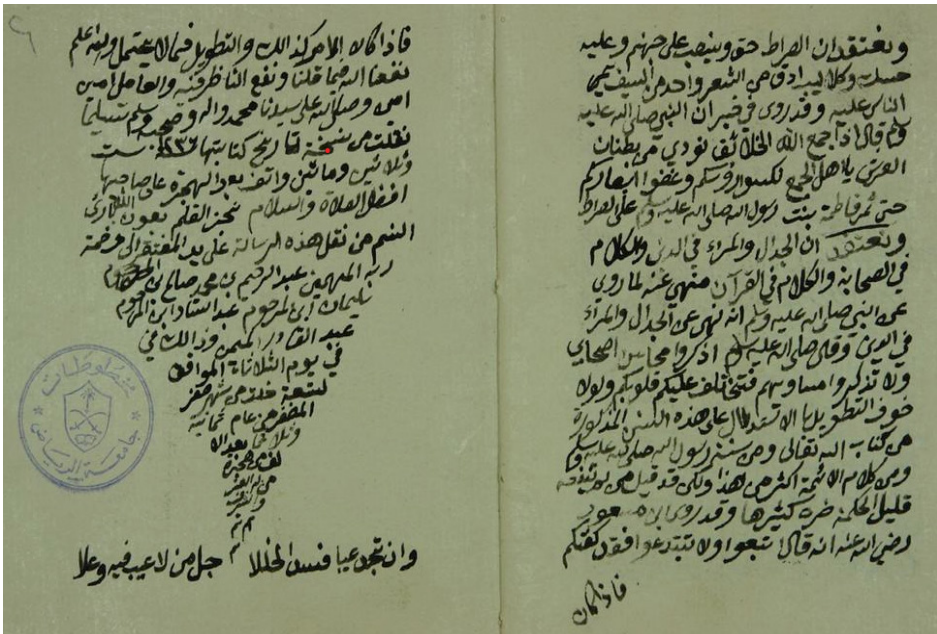 ونعتقد ان الصراط حق وينصب على جهنم وعليه
حسك وكلاليب ادق من الشعر واحد من السيف تمر
الناس عليه وقد روي في خبر ان النبي صلى الله عليه
وسلم قال اذا جمع الله الخلائق نودي من بطنان
العرش يا اهل الجمع نكسوا رؤسكم وغضوا ابصاركم
حتى تمر فاطمة بنت رسول الله صلى الله عليه وسلم على الصراط
ونعتقد ان الجدال والمراء في الدين والكلام
في الصحابة والكلام في القرآن منهي عنه لما روي
عن النبي صلى الله عليه وسلم انه نهى عن الجدال والمراء
في الدين وقال صلى الله عليه وسلم اذكروا محاسن اصحابي
ولا تذكروا مساويهم فتختلف عليكم قلوبكم ولولا
خوف التطويل الاستدلال على هذه السنن المذكورة
من كتاب الله تعالى ومن سنة رسول الله صلى الله عليه وسلم
ومن كلام الائمة اكثر من هذا ولكن قد قيل من لم ينفعه
قليل الحكمة ضره كثيرها وقد روى ابن مسعود
رضي الله عنه انه قال اتبعوا ولا تبتدعوا فقد كفيتم
فاذا كان
فاذا كان الامر كذالك والتطويل فما لا يحتمل والله اعلم
نفعنا الله فيما قلنا ونفع الناظر فيه والعامل امين
امين وصلى الله على سيدنا محمد واله وصحبه وسلم تسليما
نقلت من نسخة تاريخ كتابتها ١٢٣٦ ست
وثلاثين ومائتين والف بعد الهجرة على صاحبها
افضل الصلاة والسلام نجز القلم بعون الله باري
النسم من نقل هذه الرسالة على يد المفتقر الى رحمة
ربه المهيمن عبد الرحيم بن محمد صالح بن المرحوم
سليمان ابن المرحوم عبد الستار ابن المرحوم
عبد القادر وذالك في
في يوم الثلاثاء الموافق
لتسعة خلت من شهر صفر
المظفر من عام ثمانية
وثلاثمائة بعد الا
لف من هجرة
من له العز
والشرف
م م
م
وان تجد عيبا فسد الخللا جل من لا عيب فيه وعلا
مخطوطات
جامعة الرياض